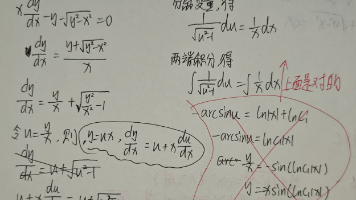 x dy/dx - y - √(y²-x²) = 0
x dy/dx = (y+√(y²-x²))/x
dy/dx = y/x + √(y²/x² - 1)
令 u = y/x, 则 y = ux, dy/dx = u + x du/dx
dy/dx = u + √(u²-1)
分离变量,得
1/√(u²-1) du = 1/x dx
两端积分,得
∫ 1/√(u²-1) du = ∫ 1/x dx
上面是对的
-arcsin u = ln|x| + ln C₁
-arcsin u = ln C₁|x|
arc- y/x = -sin(ln C₁|x|)
y = -x sin(ln C₁|x|)